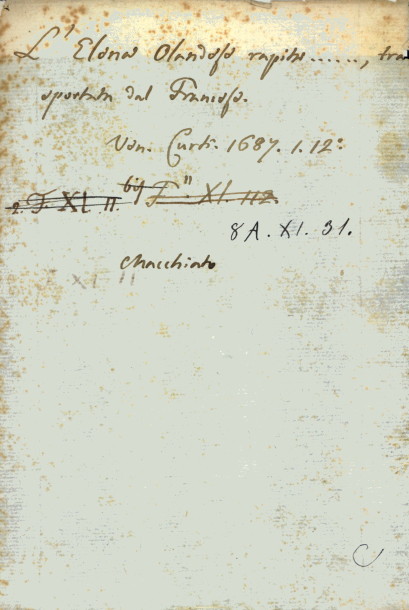 L' Elena Olandese rapita ......, tra
sportata dal Francese.
Ven. Curti. 1687. 1. 12º
2. F. XI. 11. F. XI. 112.
8 A. XI. 31.
Macchiato
XI 11